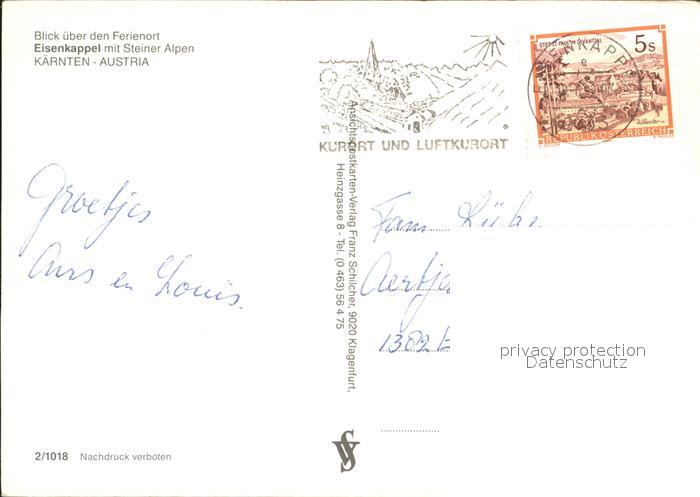 Blick über den Ferienort
Eisenkappel mit Steiner Alpen
KÄRNTEN - AUSTRIA
KURORT UND LUFTKURORT
STIFT ST. PAUL IM LAVANTTAL
5 S
REPUBLIK ÖSTERREICH
Ansichtspostkarten-Verlag Franz Schilcher, 9020 Klagenfurt,
Heinzgasse 8 - Tel. (0 463) 56 4 75
Groetjes
en Louis.
Fam
privacy protection
Datenschutz
2/1018 Nachdruck verboten